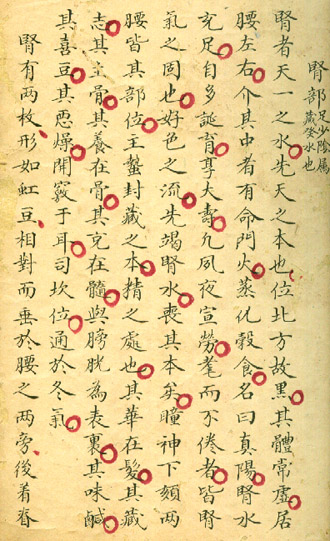 腎部 足少陰属
蔵癸水也
腎者天一之水先天之本也位北方故黒其體常虚居
腰左右介其中者有命門火蒸化穀食名曰真陽腎水
充足自多誕育享大壽凢夙夜宣勞耄而不倦者皆腎
氣之固也好色之流先竭腎水喪其本矣瞳神下頦两
腰皆其部位王蟄封藏之本精之處也其華在髮其藏
志其主骨其養在骨其充在髓與膀胱為表裏其味鹹
其喜豆其惡燥開竅于耳司坎位通於冬氣
腎有两枚形如虹豆相對而垂於腰之两旁後着脊